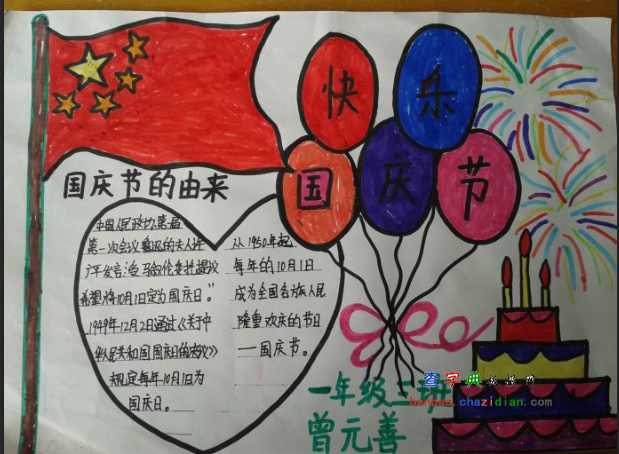 快乐
国庆节
国庆节的由来
中国人民政协第一届
第一次会议鲁迅的夫人许
广平发言说马叙伦委员提议
希望将10月1日定为国庆日。”
1949年12月2日通过《关于中
华人民共和国国庆日的决议》
规定每年10月1日为
国庆日。
从1950年起
每年的10月1日
成为全国各族人民
隆重欢庆的节日
—国庆节。
一年级三班
曾元善
查字典
banbao.chazidian.com